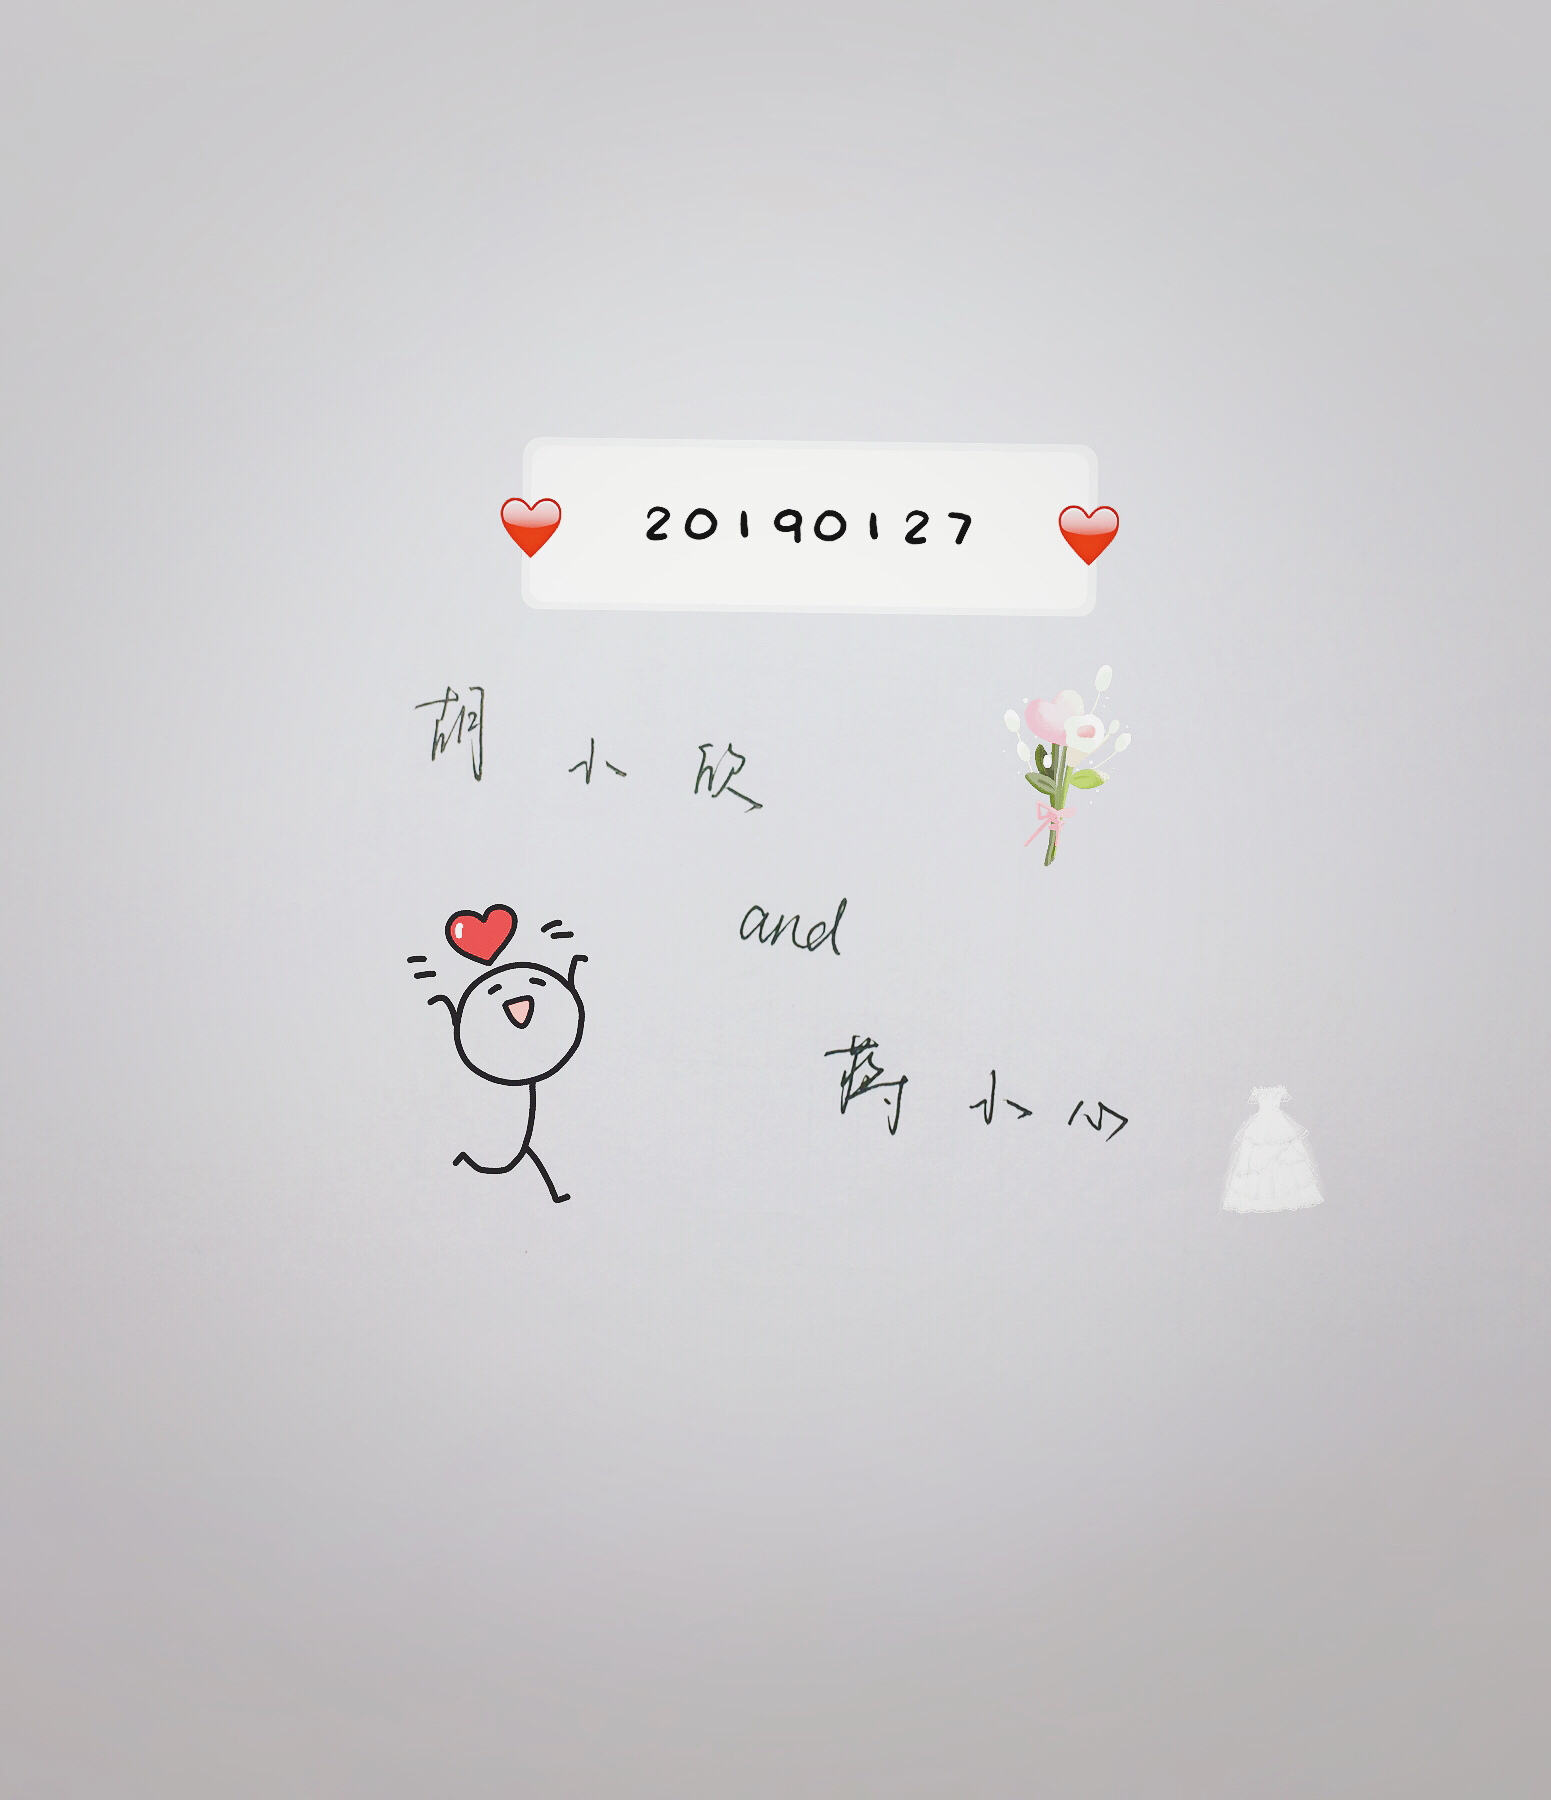 20190127
胡小欣
and
蒋小心